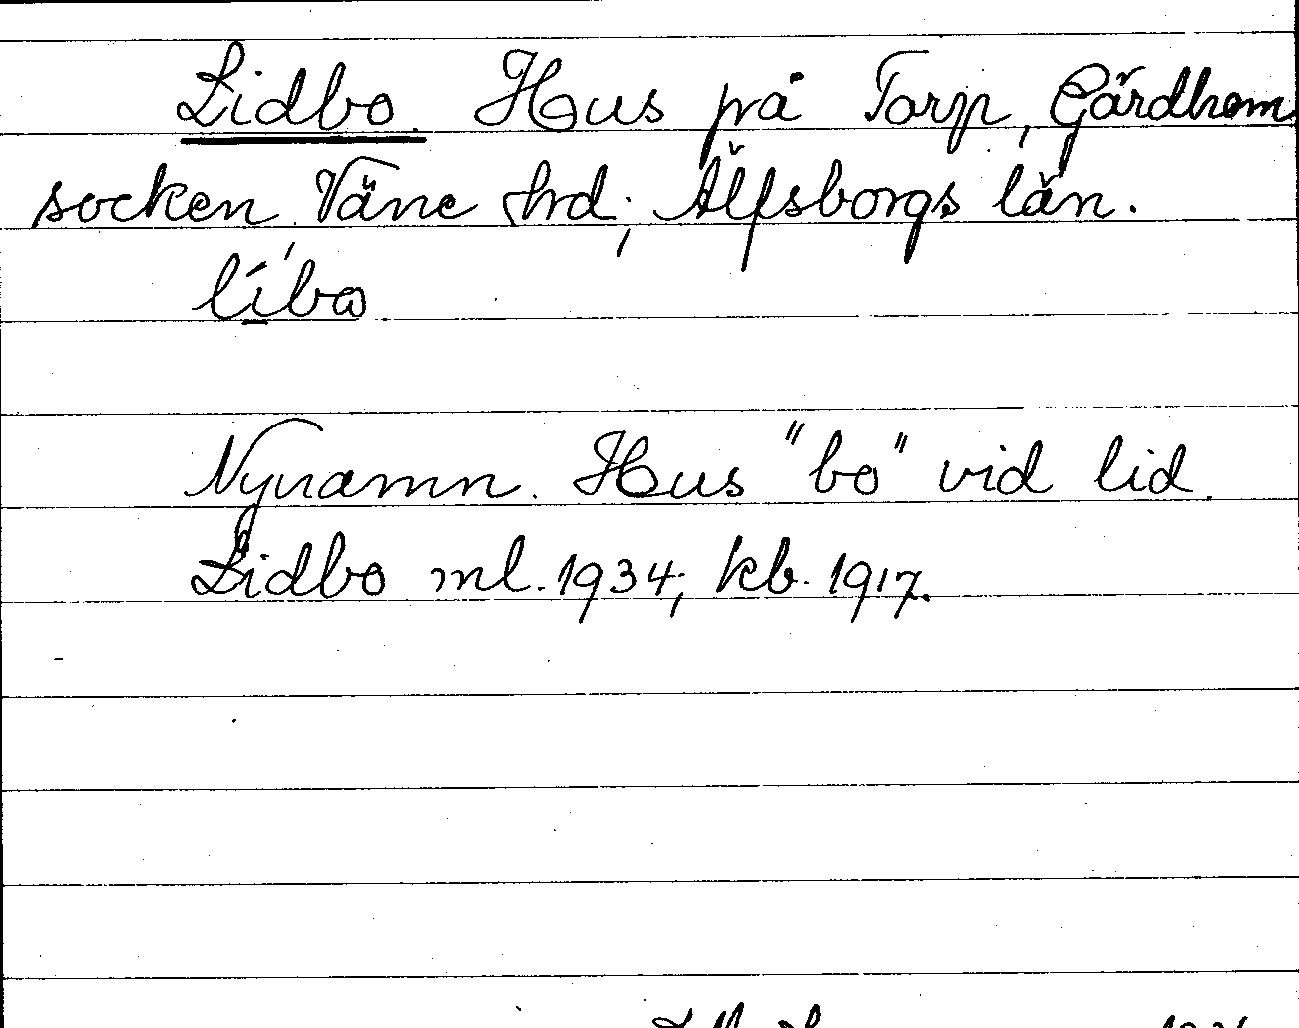 Lidbo. Hus på Torp, Gärdhem
socken Väne hrd; Älfsborgs län.
Nynamn. Hus "bo" vid lid.
Lidbo ml. 1934; kb. 1917.